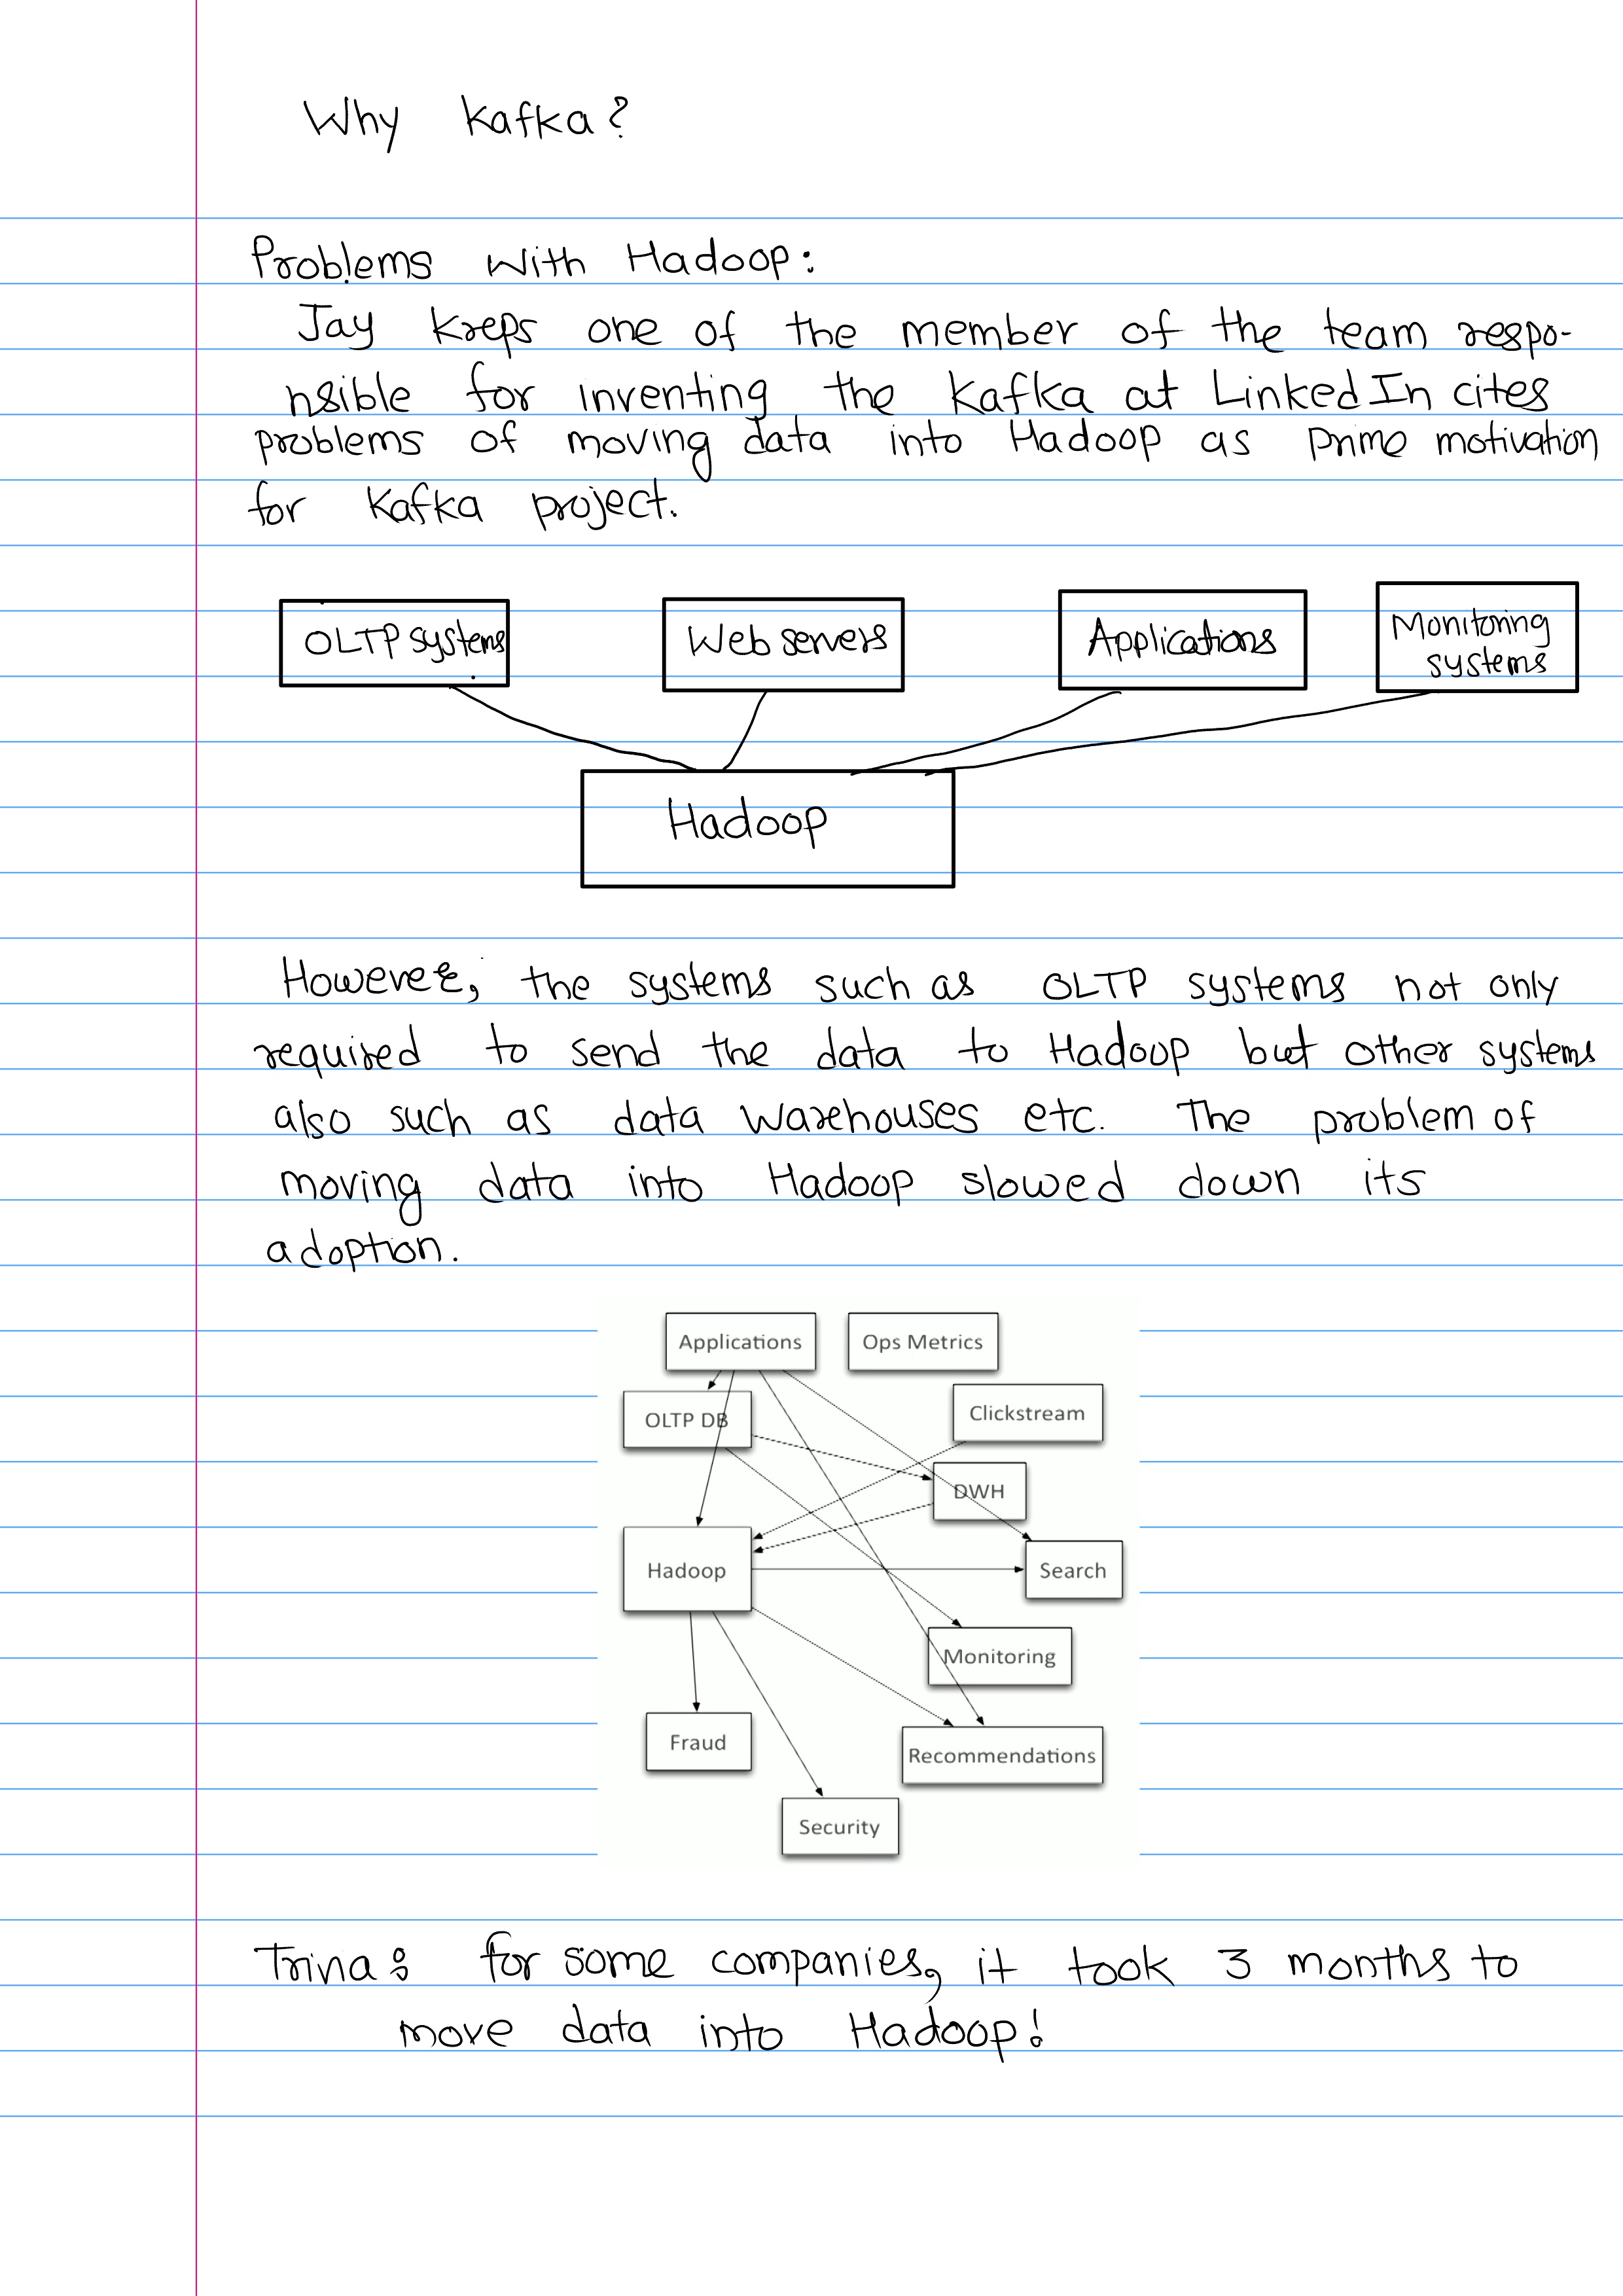 Why Kafka?
Problems with Hadoop:
Jay Kreps one of the member of the team respo-
nsible for inventing the Kafka at LinkedIn cites
problems of moving data into Hadoop as prime motivation
for Kafka project.
OLTP systems
Web servers
Applications
Monitoring
systems
Hadoop
However, the systems such as OLTP systems not only
required to send the data to Hadoop but other systems
also such as data warehouses etc. The problem of
moving data into Hadoop slowed down its
adoption.
Applications
Ops Metrics
OLTP DB
Clickstream
DWH
Hadoop
Search
Monitoring
Fraud
Recommendations
Security
Trina: for some companies, it took 3 months to
move data into Hadoop!